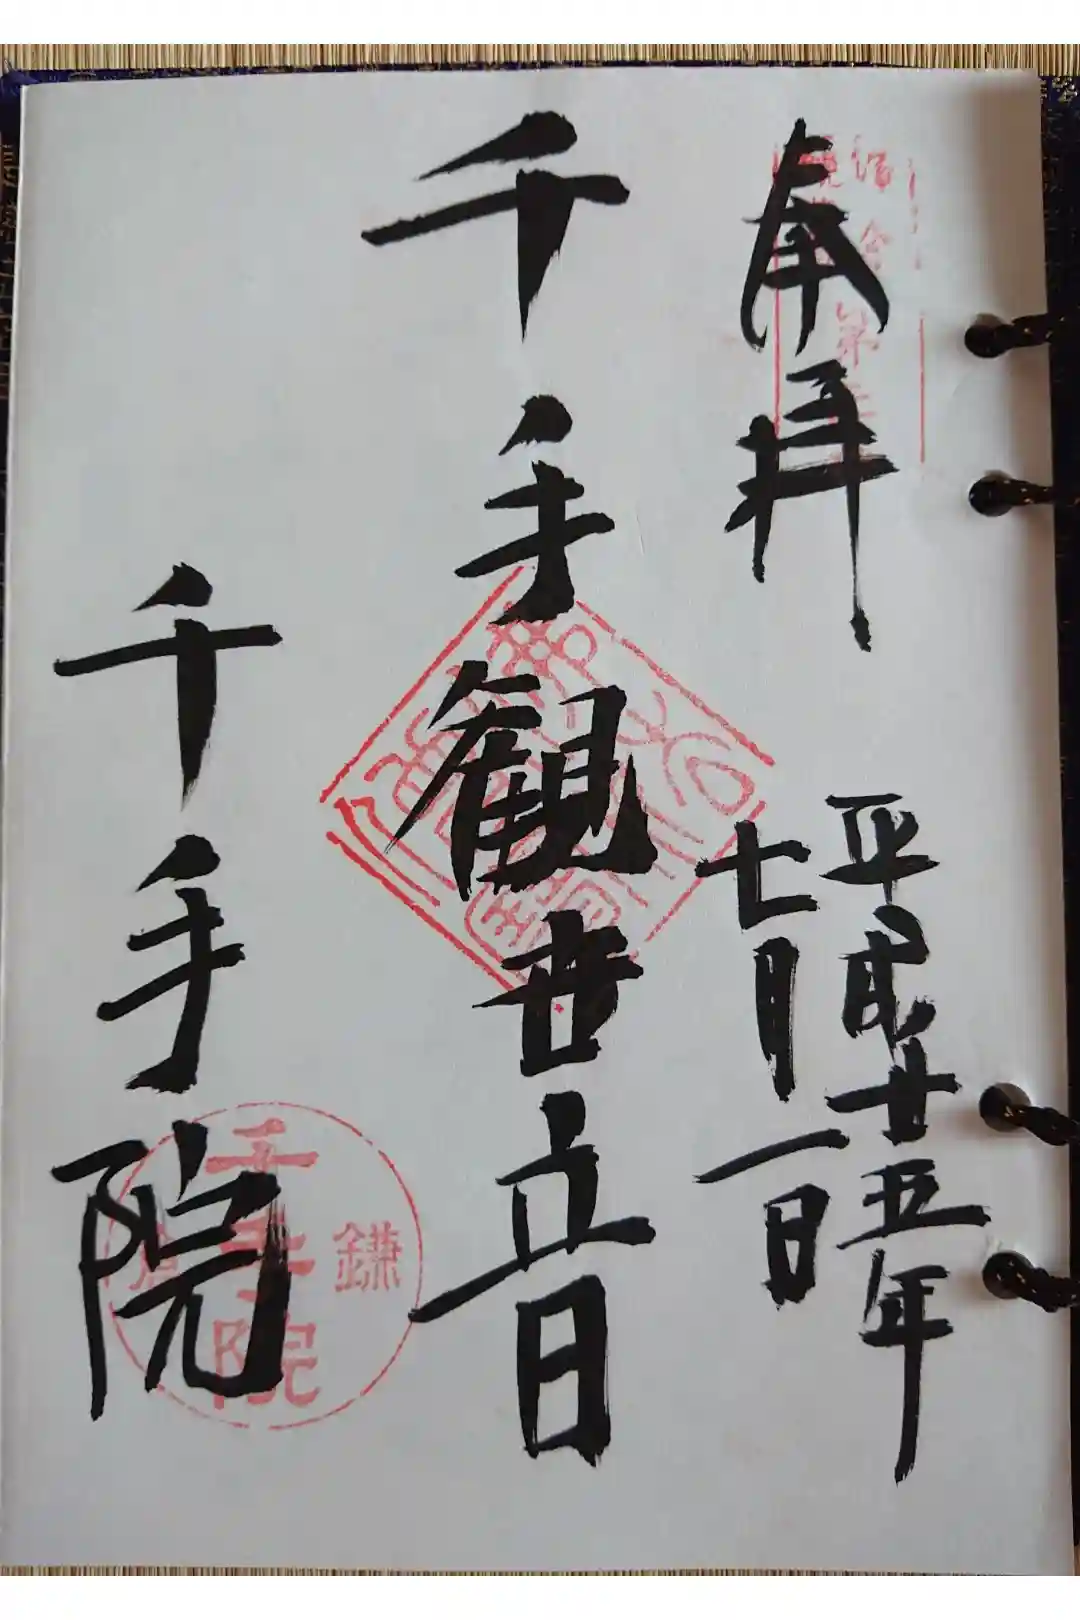 奉拝
平成廿五年
七月一日
千手観世音
千手院
鎌倉
千手院